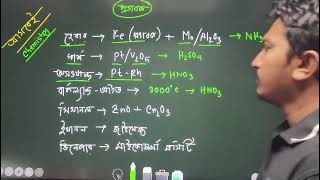 প্রভাবক
হেবার → Fe (প্রভাবক) + Mo/Al₂O₃ → NH₃
স্পর্শ → Pt/V₂O₅ → H₂SO₄
অসওয়াল্ড → Pt-Rh → HNO₃
বার্কল্যান্ড-আইড → 3000°C → HNO₃
মিথানল → ZnO + Cr₂O₃
ইথানল → জাইমেজ
ভিনেগার →